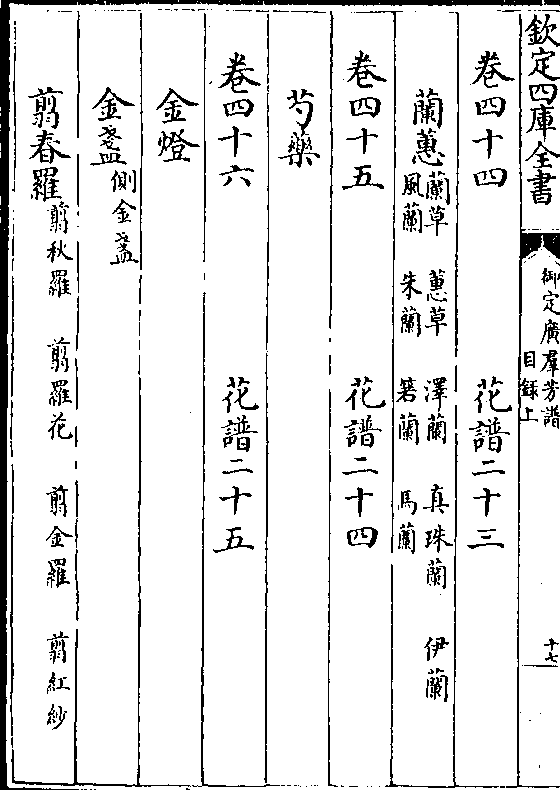 欽定四庫全書
御定廣羣芳譜
目録上
十七
卷四十四 花譜二十三
蘭蕙 蘭草 蕙草 澤蘭 真珠蘭 伊蘭
風蘭 朱蘭 箬蘭 馬蘭
卷四十五 花譜二十四
芍藥
卷四十六 花譜二十五
金燈
金盞 側金盞
翦春羅 翦秋羅 翦羅花 翦金羅 翦紅紗